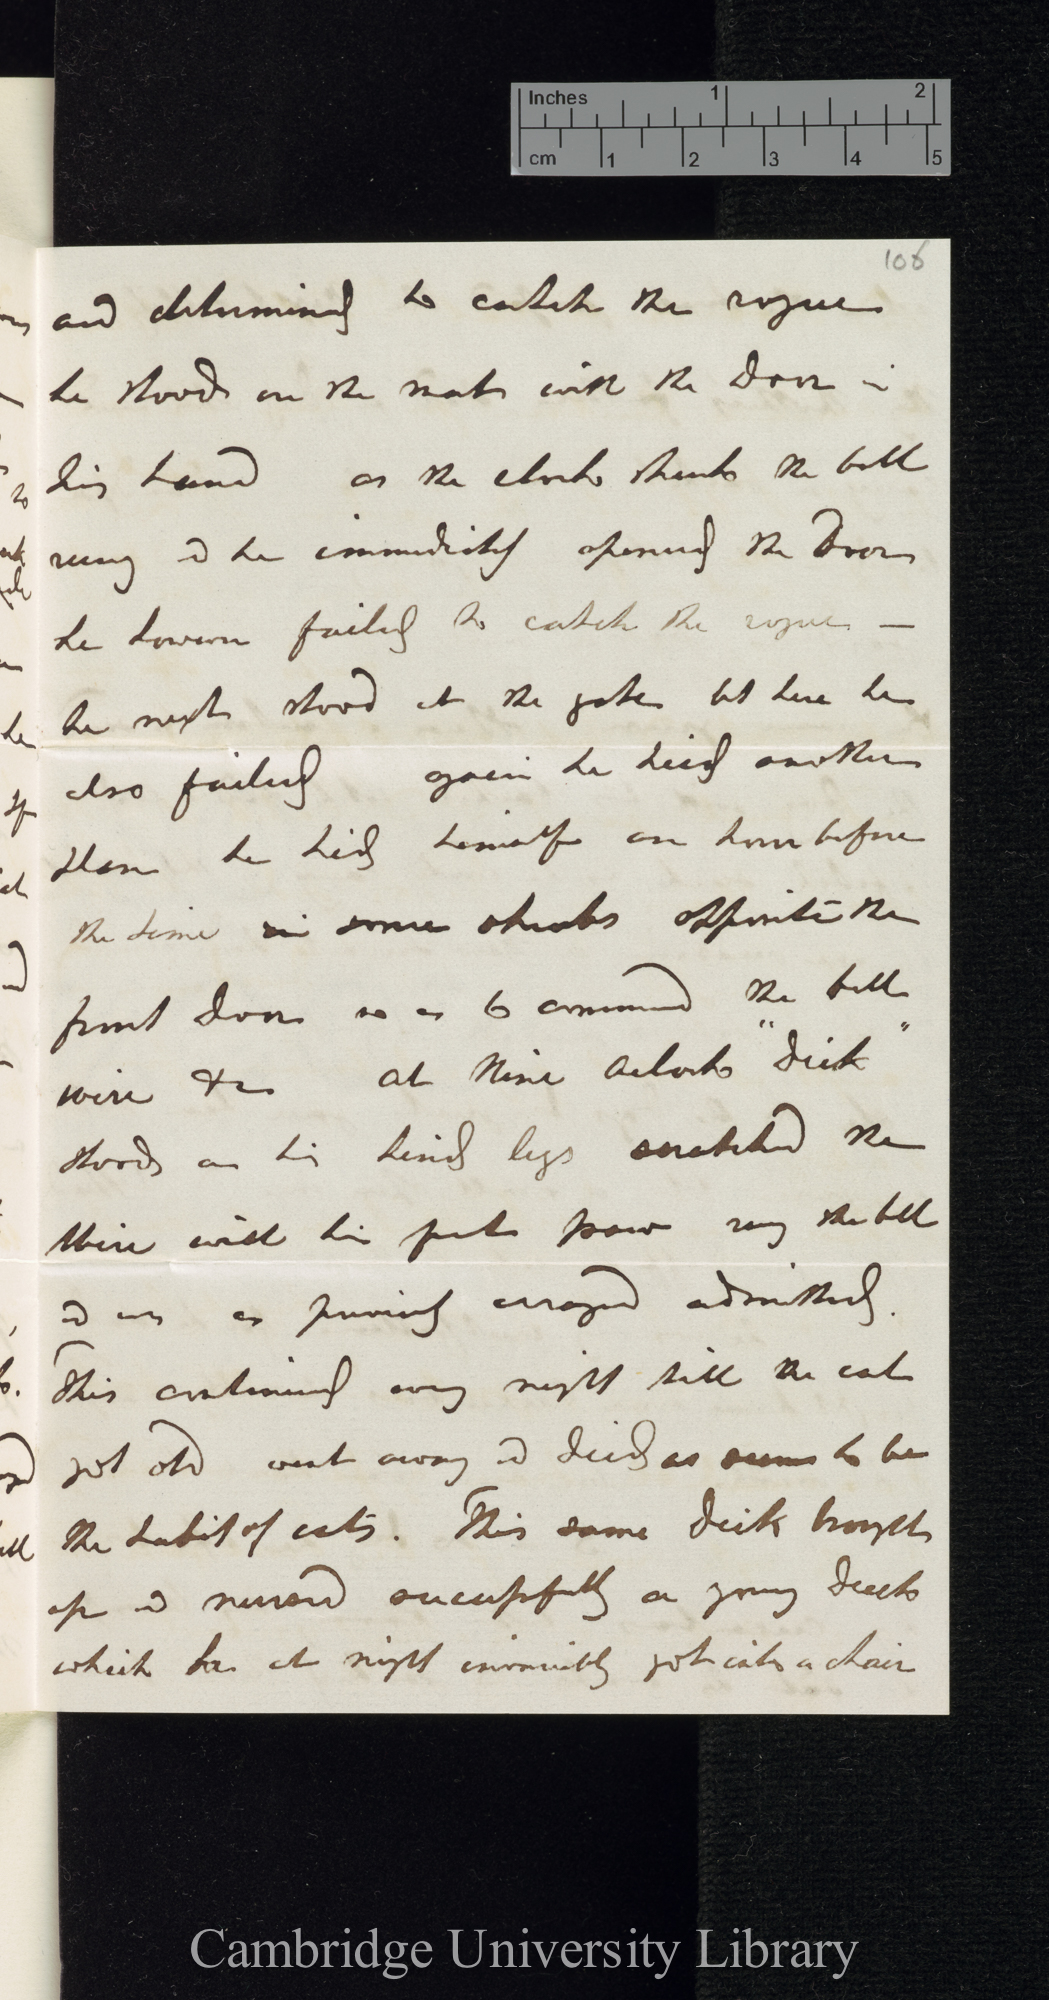 Inches 1 2
cm 1 2 3 4 5
106
and determined to catch the rogue
he stood on the mat with the door in
his hand as the clock struck the bell
rung & he immediately opened the door
he however failed to catch the rogue —
he next stood at the gate but here he
also failed again he tried another
plan he hid himself an hour before
the time in some shrubs opposite the
front door so as to command the bell
wire &c at Nine oclock "Dick"
stood on his hind legs snatched the
Wire with his fore paw rung the bell
& was as previously arranged admitted.
This continued every night till the cat
got old went away & died as seems to be
the habit of cats. This same Dick brought
up & nursed successfully a young duck
which he at night invariably got into a chair
Cambridge University Library